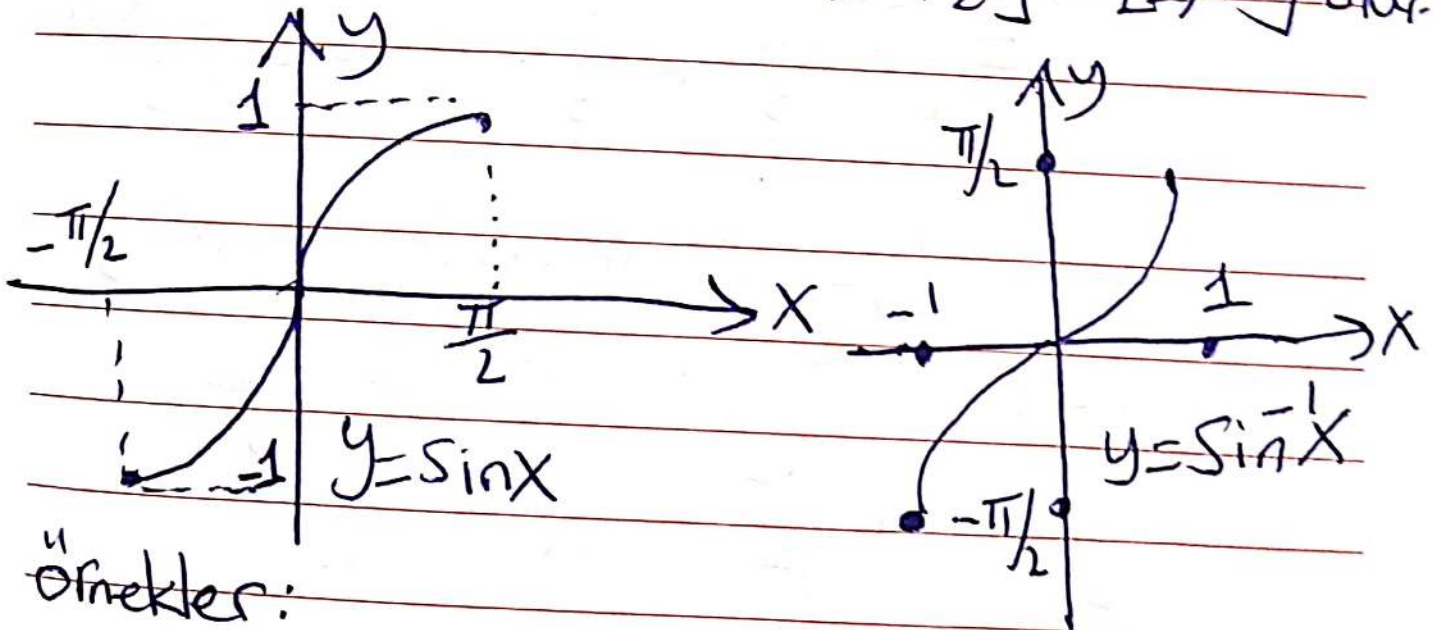 y
1
-π/2
π/2
X
-1
y=sinx
y
π/2
-1
1
X
y=sin⁻¹x
-π/2
örnekler: